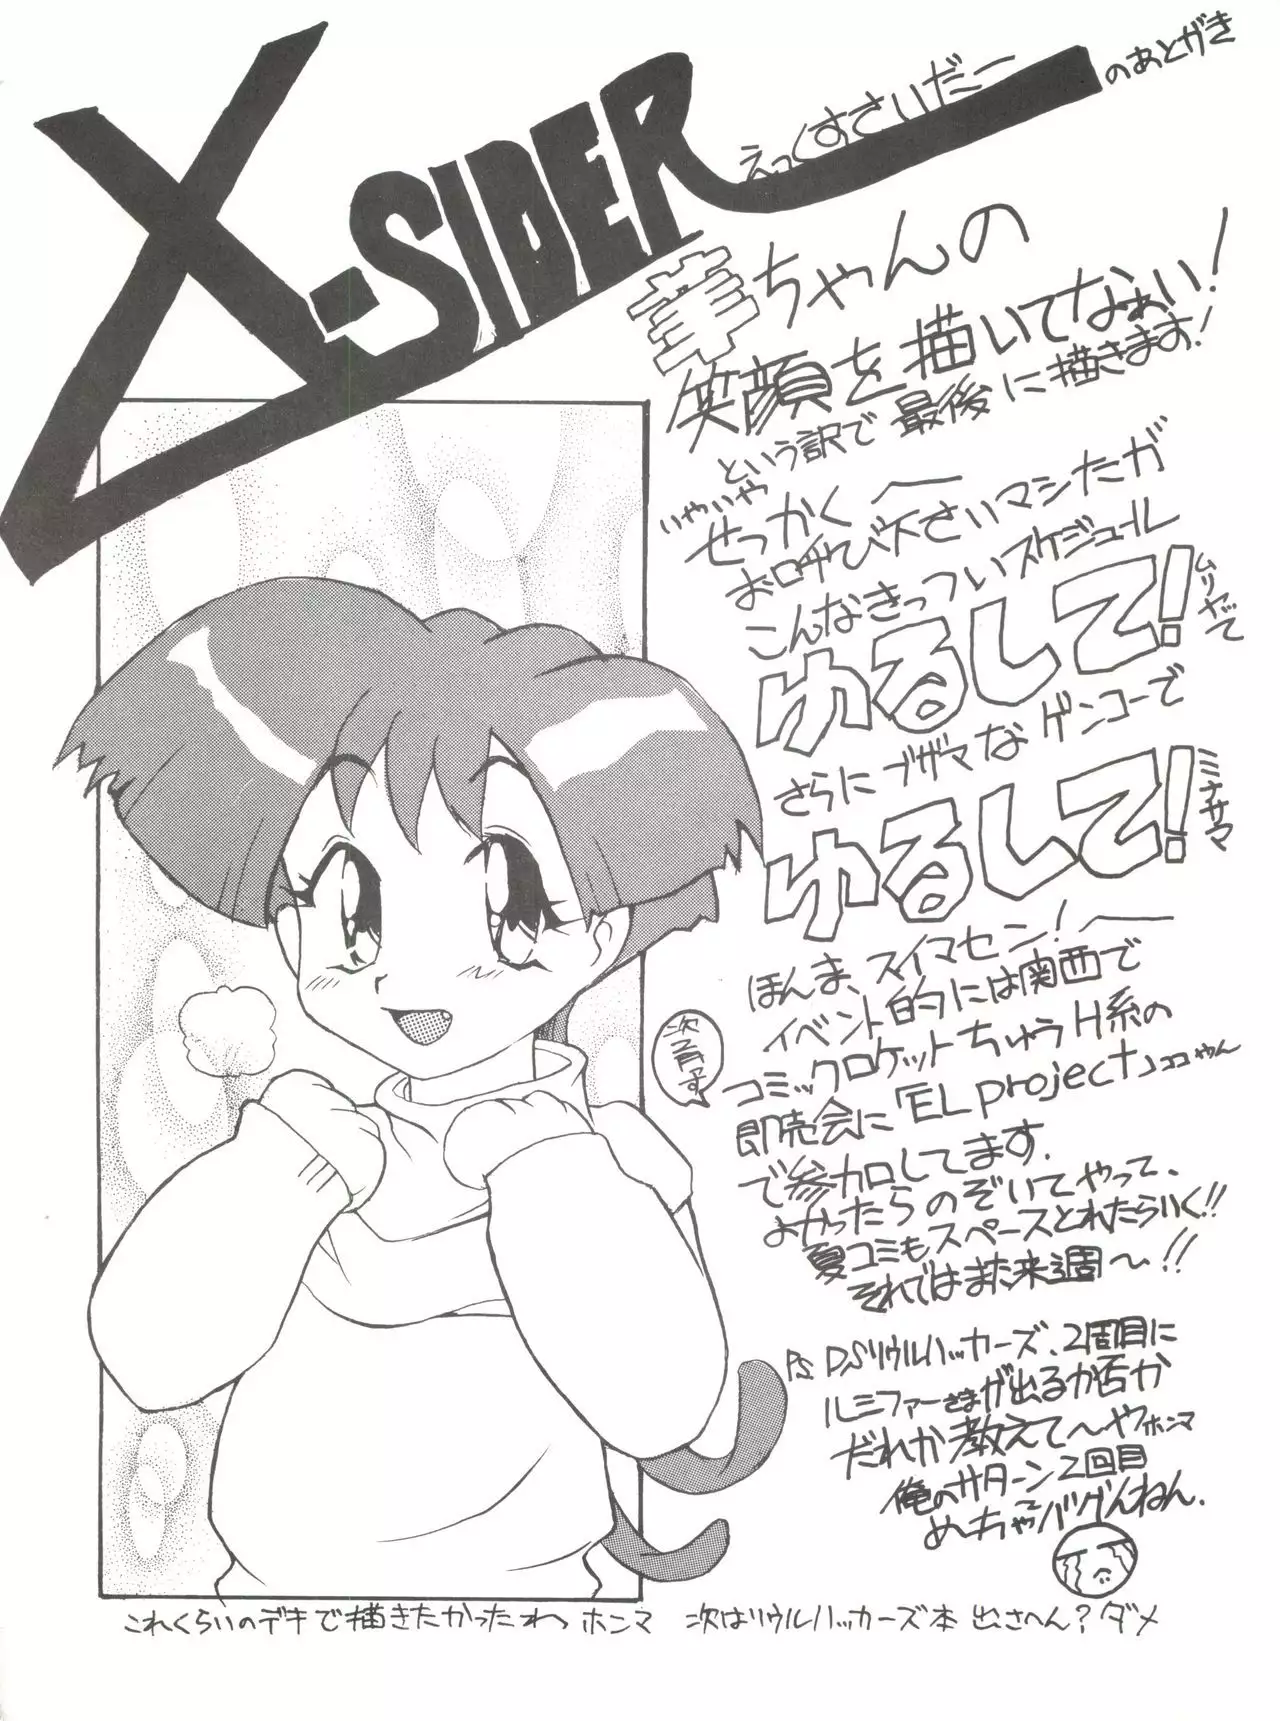 X-SIDER
えっくすさいだー
のあとがき
華ちゃんの
笑顔を描いてなぁい!
という訳で最後に描きます!
いやいや
せっかく
お呼び下さいマシたガ
こんなきっついスケジュール
ゆるして!
ムリヤで
さらにブザマなゲンコーで
ゆるして!
ミナサマ
ほんま、スイマセン!
イベント的には関西で
コミックロケットちゅうH系の
即売会に「EL project」ココやん
で参加してます.
よかったらのぞいてやって、
夏コミもスペースとれたらいく!!
それではまた来週〜!!
PS. DSソウルハッカーズ、2周目に
ルシファーさまが出るか否か
だれか教えて〜やホンマ
俺のサターン2回目
めーちゃバグんねん.
これくらいのデキで描きたかったわっホンマ
次はソウルハッカーズ本 出さへん?ダメ